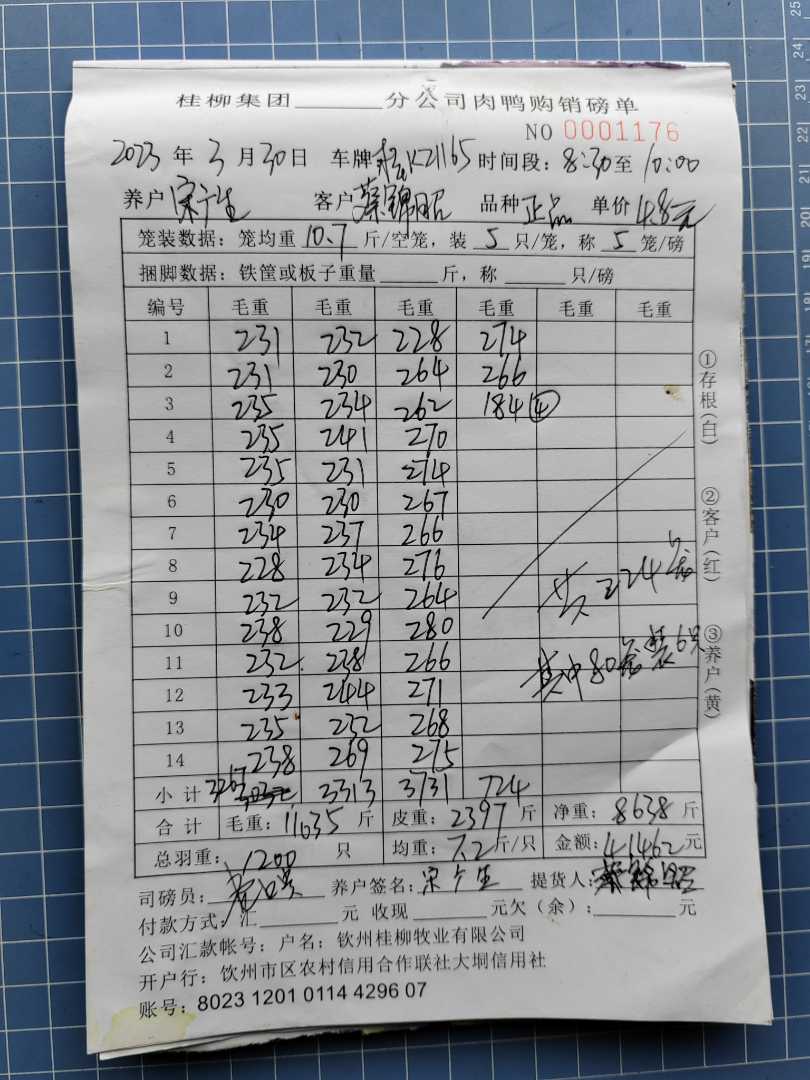 桂柳集团______分公司肉鸭购销磅单
NO 0001176
2023 年 3 月 30 日 车牌 K21165 时间段：8:30 至 10:00
养户 宋广生 客户 蔡锦昭 品种 正品 单价 4.8元
笼装数据：笼均重 10.7 斤/空笼，装 5 只/笼，称 5 笼/磅
捆脚数据：铁筐或板子重量______斤，称______只/磅
编号 毛重 毛重 毛重 毛重 毛重 毛重
1 231 232 228 274
2 231 230 264 266
3 235 234 262 184 ④
4 235 241 270
5 235 231 274
6 230 230 267
7 234 237 266
8 228 234 276
9 232 232 264
10 238 229 280
11 232 238 266
12 233 244 271
13 235 232 268
14 238 269 275
共224笼
其中80笼装6只
小计 3267 3313 3731 724
合计 毛重：11635 斤 皮重：2397 斤 净重：8638 斤
总羽重：1200 只 均重：7.2 斤/只 金额：41462 元
司磅员： 养户签名：宋广生 提货人：蔡锦昭
付款方式：汇______元 收现______元欠（余）：______元
公司汇款帐号：户名：钦州桂柳牧业有限公司
开户行：饮州市区农村信用合作联社大垌信用社
账号：8023 1201 0114 4296 07
①存根（白） ②客户（红） ③养户（黄）